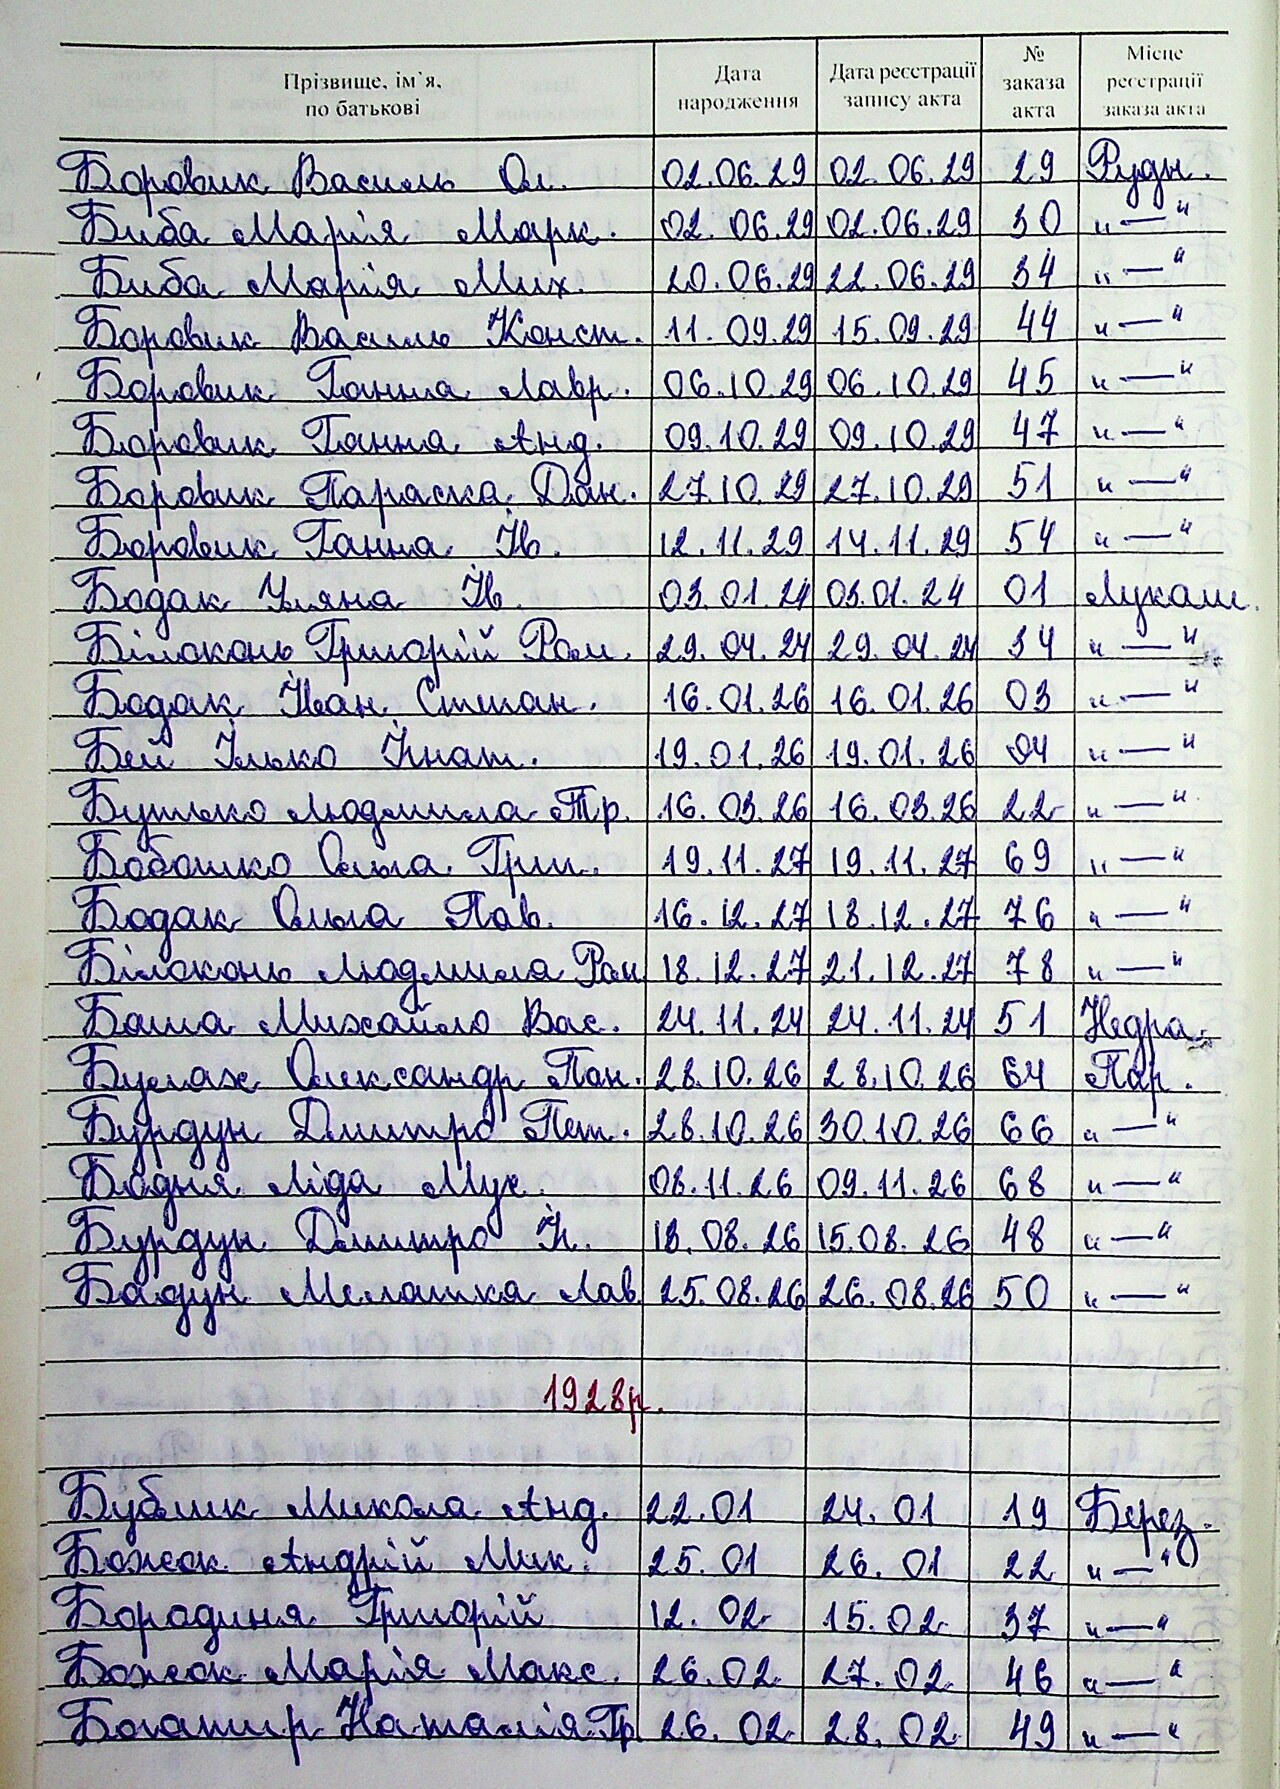 Прізвище, ім`я, по батькові Дата народження Дата реєстрації запису акта № заказа акта Місце реєстрації заказа акта
Боровик Василь Ол. 02.06.29 02.06.29 29 Рудн.
Биба Марія Марк. 02.06.29 02.06.29 30 "—"
Биба Марія Мих. 20.06.29 22.06.29 34 "—"
Боровик Василь Конст. 11.09.29 15.09.29 44 "—"
Боровик Ганна Лавр. 06.10.29 06.10.29 45 "—"
Боровик Ганна Анд. 09.10.29 09.10.29 47 "—"
Боровик Параска Дан. 27.10.29 27.10.29 51 "—"
Боровик Ганна Ів. 12.11.29 14.11.29 54 "—"
Бодак Уляна Ів. 03.01.24 03.01.24 01 Лукаш.
Білоконь Григорій Ром. 29.04.24 29.04.24 34 "—"
Бодак Іван Степан. 16.01.26 16.01.26 03 "—"
Бей Ілько Ігнат. 19.01.26 19.01.26 04 "—"
Людмила Тр. 16.03.26 16.03.26 22 "—"
Бобошко Ольга Григ. 19.11.27 19.11.27 69 "—"
Бодак Ольга Пав. 16.12.27 18.12.27 76 "—"
Білоконь Людмила Ром 18.12.27 21.12.27 78 "—"
Баша Михайло Вас. 24.11.24 24.11.24 51 Недра.
Булах Олександр Пан. 28.10.26 28.10.26 64 Пар.
Бурдун Дмитро Пет. 28.10.26 30.10.26 66 "—"
Бодня Ліда Мус. 08.11.26 09.11.26 68 "—"
Бурдун Дмитро Ів. 13.08.26 15.08.26 48 "—"
Бадун Мелашка Лав. 25.08.26 26.08.26 50 "—"
1928р.
Бублик Микола Анд. 22.01 24.01 19 Берез.
Божок Андрій Мик. 25.01 26.01 22 "—"
Бородиня Григорій 12.02 15.02 37 "—"
Божок Марія Макс. 26.02 27.02 46 "—"
Богатир Наталія Гр 26.02 28.02 49 "—"